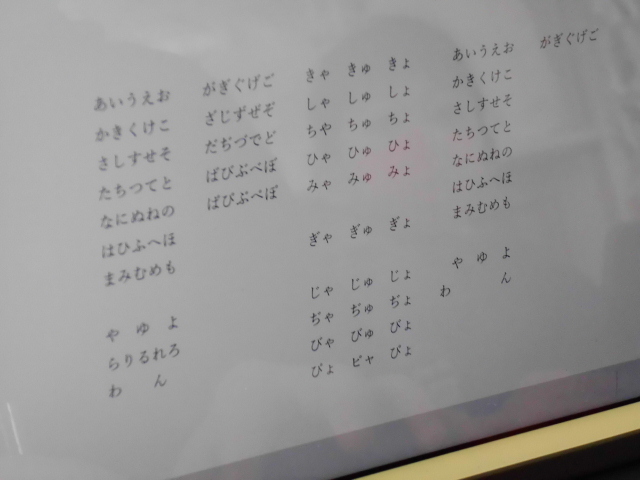 あいうえお
かきくけこ
さしすせそ
たちつてと
なにぬねの
はひふへほ
まみむめも
や ゆ よ
らりるれろ
わ ん
がぎぐげご
ざじずぜぞ
だぢづでど
ばびぶべぼ
ぱぴぷぺぽ
きゃ きゅ きょ
しゃ しゅ しょ
ちや ちゅ ちょ
ひゃ ひゅ ひょ
みゃ みゅ みょ
ぎゃ ぎゅ ぎょ
じゃ じゅ じょ
ぢゃ ぢゅ ぢょ
びゃ びゅ びょ
ぴょ ピャ ぴょ
あいうえお
かきくけこ
さしすせそ
たちつてと
なにぬねの
はひふへほ
まみむめも
や ゆ よ
わ ん
がぎぐげご